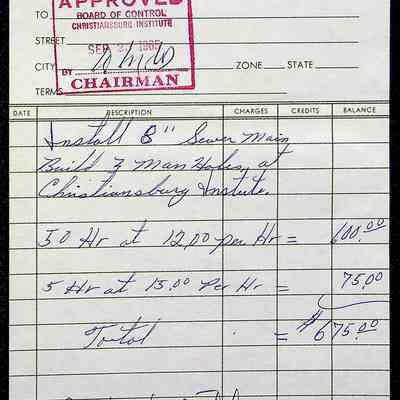 APPROVED
BOARD OF CONTROL
CHRISTIANSBURG INSTITUTE
SEP 27 1965
BY
CHAIRMAN
TO
STREET
CITY ZONE STATE
TERMS
DATE DESCRIPTION CHARGES CREDITS BALANCE
Install 8" Sewer Main
Build 3 Man Holes, at
Christiansburg Institute.
50 Hr at 12.00 per Hr = 600.00
5 Hr at 15.00 Per Hr = 75.00
Total = $675.00